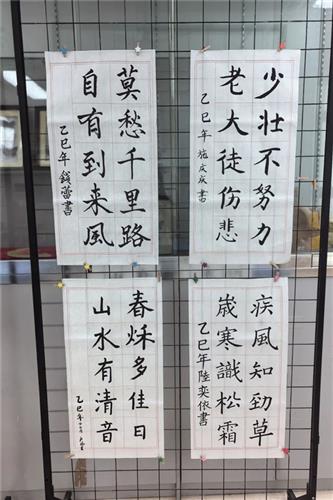 莫愁千里路
自有到来风
乙巳年 錢蕾書
少壮不努力
老大徒伤悲
乙巳年 施庆庆 書
春秌多佳日
山水有清音
乙巳年
疾風知勁草
歳寒識松霜
乙巳年陸奕依書